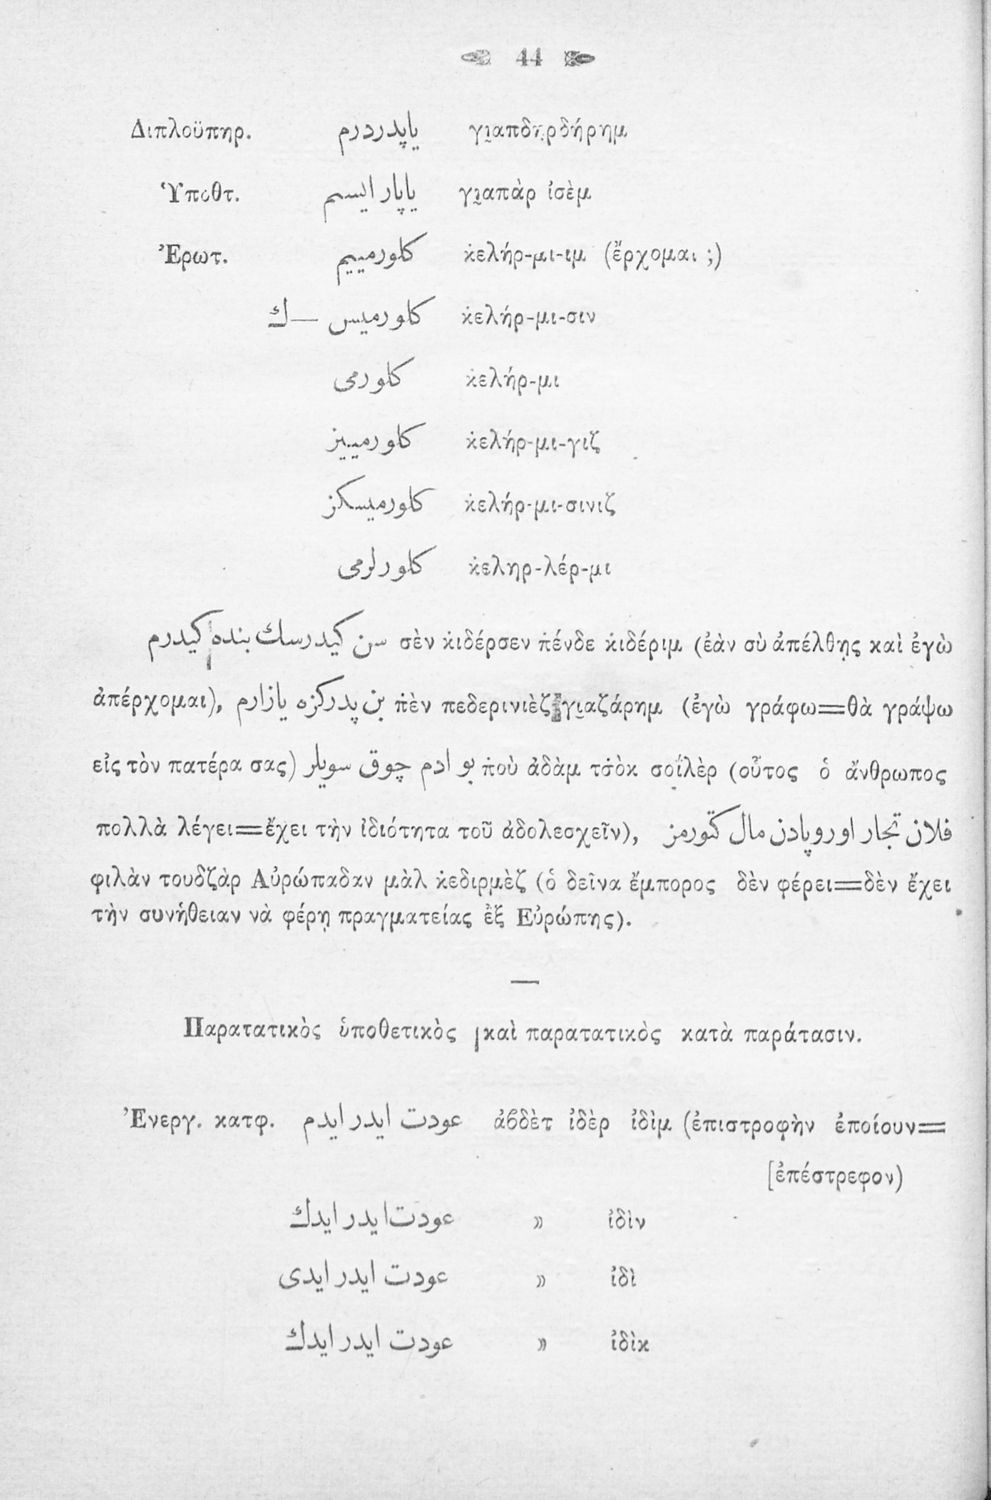 44
Διπλοϋπηρ. ياپدردرم γι̯απδηρδήρημ
Ὑποθτ. ياپار ايسم γι̯απὰρ ἰσὲμ
Ἐρωτ. كلورمييم κ̇ελήρ-μι-ιμ (ἔρχομαι ;)
كلورميس —ك κ̇ελήρ-μι-σιν
كلورمى κ̇ελήρ-μι
كلورمييز κ̇ελήρ-μι-γιζ
كلورميسكز κ̇ελήρ-μι-σινιζ
كلورلرمى κ̇εληρ-λέρ-μι
سن كيدرسك بنده كيدرم σὲν κ̇ιδέρσεν π̇ένδε κ̇ιδέριμ (ἐὰν σὺ ἀπέλθῃς καὶ ἐγὼ
ἀπέρχομαι), بن پدركزه يازارم π̇ὲν πεδερινιὲζ γι̯αζάρημ (ἐγὼ γράφω=θὰ γράψω
εἰς τὸν πατέρα σας) بو ادم چوق سويلر π̇οὺ ἀδὰμ τσ̇ὸκ σοϊλὲρ (οὗτος ὁ ἄνθρωπος
πολλὰ λέγει=ἔχει τὴν ἰδιότητα τοῦ ἀδολεσχεῖν), فلان تجار اوروپادن مال كتورمز
φιλὰν τουδζὰρ Αὐρώπαδαν μὰλ κ̇εδιρμὲζ (ὁ δεῖνα ἔμπορος δὲν φέρει=δὲν ἔχει
τὴν συνήθειαν νὰ φέρῃ πραγματείας ἐξ Εὐρώπης).
Παρατατικὸς ὑποθετικὸς καὶ παρατατικὸς κατὰ παράτασιν.
Ἐνεργ. κατφ. عودت ايدر ايدم ἀβδὲτ ἰδὲρ ἰδὶμ (ἐπιστροφὴν ἐποίουν=
[ἐπέστρεφον)
عودت ايدر ايدك » ἰδὶν
عودت ايدر ايدى » ἰδὶ
عودت ايدر ايدك » ἰδὶκ